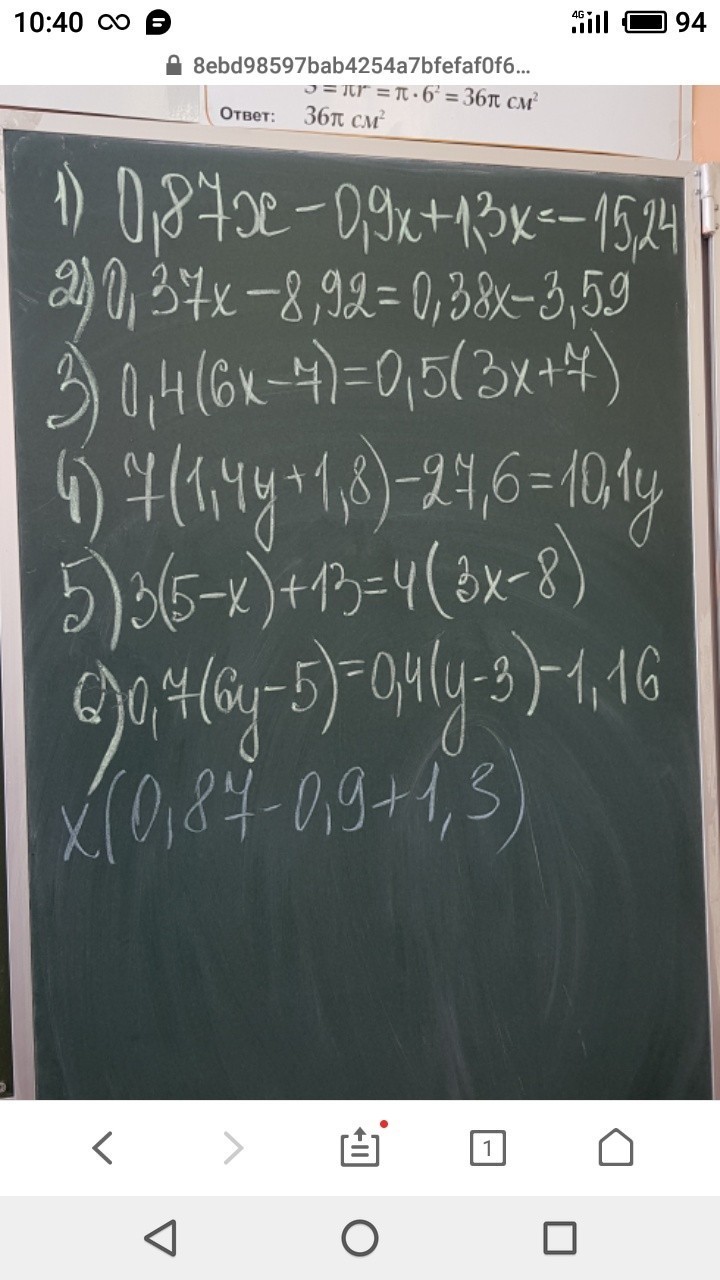 10:40 4G 94
8ebd98597bab4254a7bfefaf0f6...
S = πr² = π · 6² = 36π см²
Ответ: 36π см²
1) 0,87x - 0,9x + 1,3x = - 15,24
2) 0,37x - 8,92 = 0,38x - 3,59
3) 0,4(6x - 7) = 0,5(3x + 7)
4) 7(1,4y + 1,8) - 27,6 = 10,1y
5) 3(5 - x) + 13 = 4(3x - 8)
6) 0,7(6y - 5) = 0,4(y - 3) - 1,16
x(0,87 - 0,9 + 1,3)
1